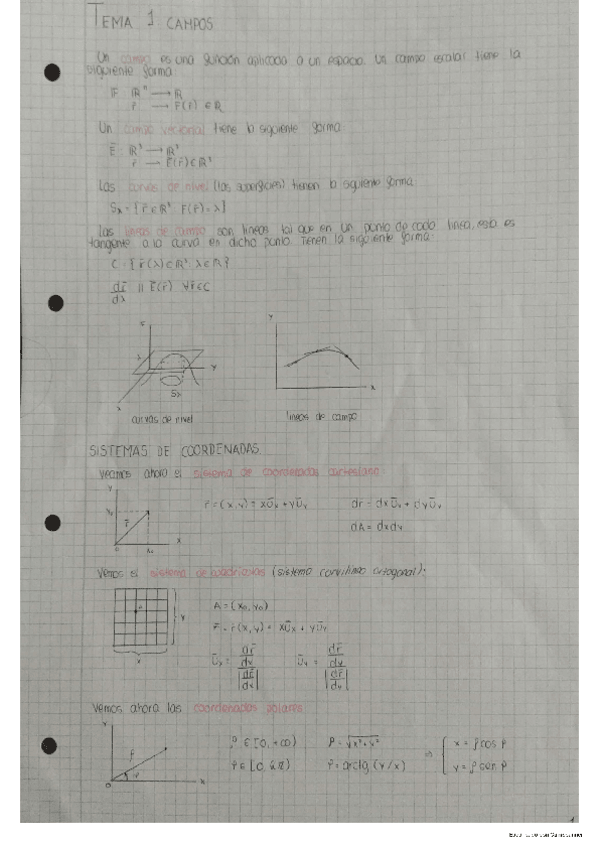 TEMA 1 CAMPOS
Un campo es una función aplicada a un espacio. Un campo escalar tiene la
siguiente forma:
F: ℝⁿ → ℝ
r̄ → F(r̄) ∈ ℝ
Un campo vectorial tiene la siguiente forma
Ē: ℝ³ → ℝ³
r̄ → Ē(r̄) ∈ ℝ³
Las curvas de nivel (las superficies) tienen la siguiente forma
Sλ = { r̄ ∈ ℝ³ F(r̄) = λ }
Las líneas de campo son líneas tal que en un punto de cada línea, esta es
tangente a la curva en dicho punto. Tienen la siguiente forma:
C = { r̄(λ) ∈ ℝ³ λ ∈ ℝ }
dr̄/dλ ∥ Ē(r̄) ∀r̄ ∈ C
z
λ
y
Sλ
x
curvas de nivel
y
x
líneas de campo
SISTEMAS DE COORDENADAS.
Veamos ahora el sistema de coordenadas cartesiano
y
r̄
0
x
r̄ = (x,y) = xŪx + yŪy
dr̄ = dxŪx + dyŪy
dA = dxdy
Vemos el sistema de cuadrículas (sistema curvilíneo ortogonal):
y
x
A = (x₀, y₀)
r̄ = r̄(x,y) = xŪx + yŪy
Ūx = (dr̄/dx) / |dr̄/dx|
Ūy = (dr̄/dy) / |dr̄/dy|
Vemos ahora las coordenadas polares
y
x
0
ρ ∈ [0, +∞)
ρ = √x²+y²
⇒ { x = ρ cos φ
φ ∈ [0, 2π)
φ = arctg (y/x)
y = ρ sen φ
1